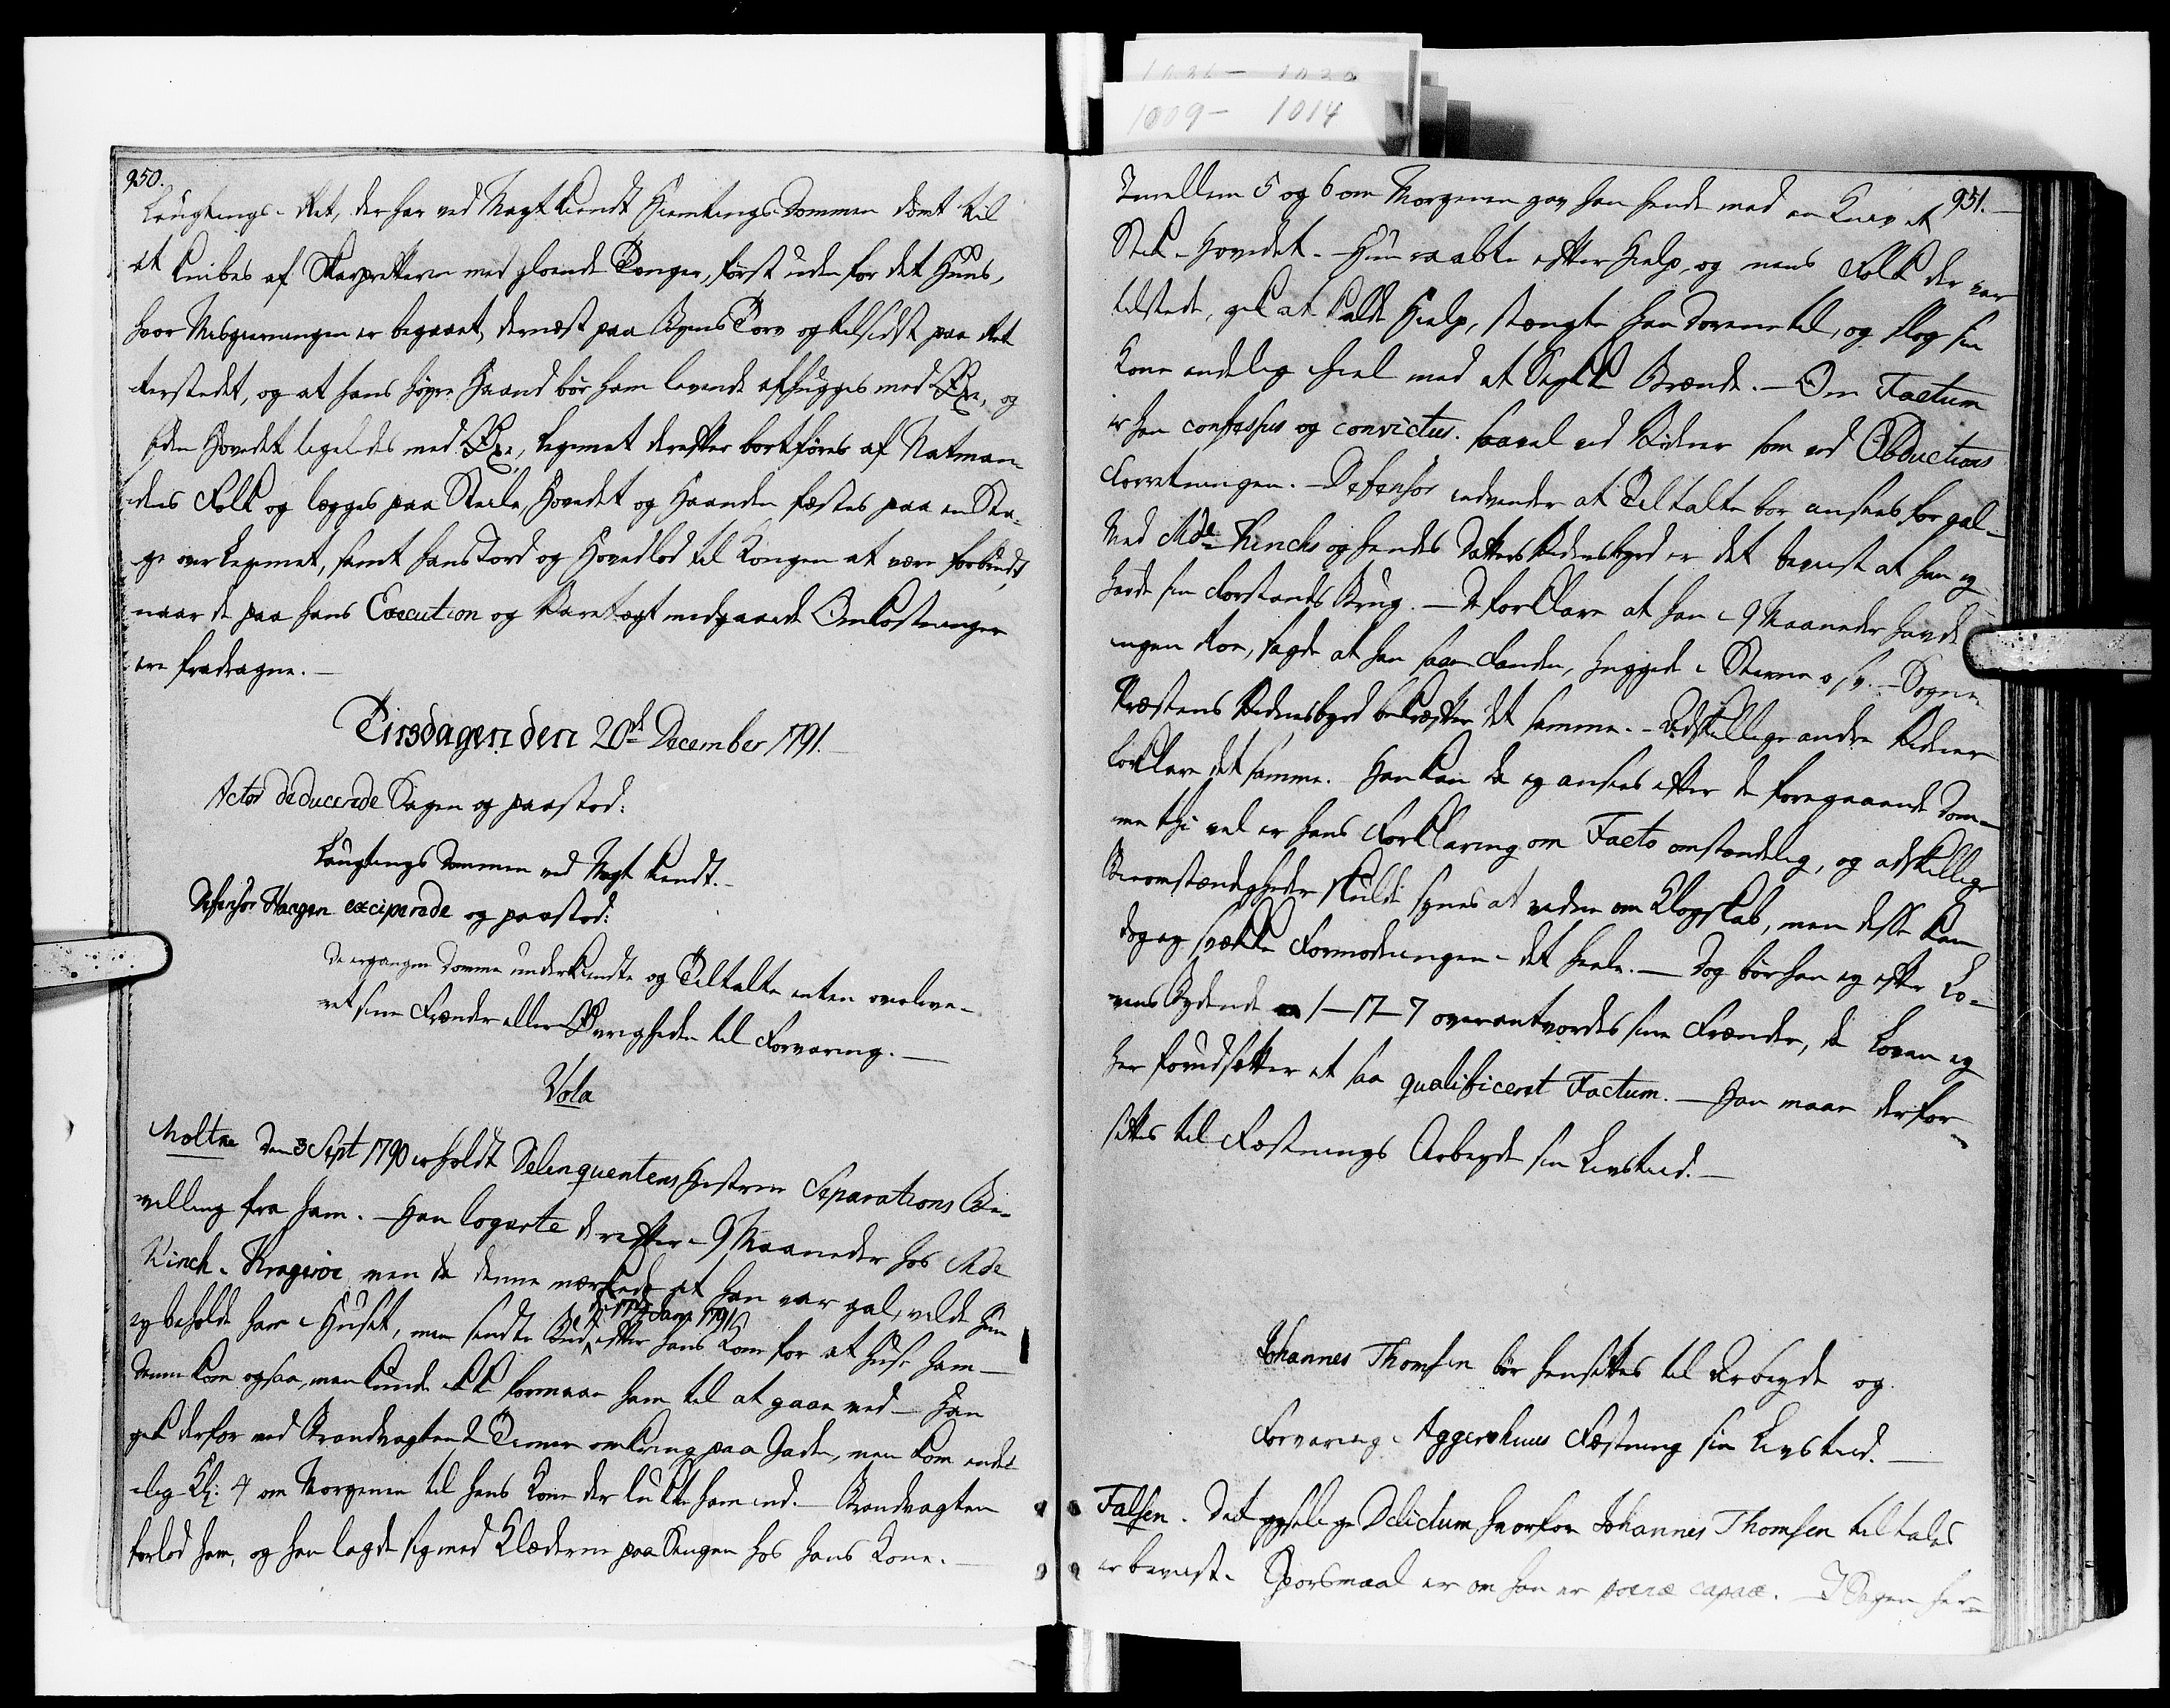 1009 - 1014
950.
Laugtings-Ret, der har ved Magt kiendt Hiemtings Dommen dömt til
at knibes af Skarpretteren med gloende Tænger, først uden for det Huus,
hvor Misgierningen er begaaet, dernæst paa Byens Torv og tilsidst paa Ret
terstedet, og at hans høyre Haand bör ham levende afhugges med Øxe, og
siden Hovedet ligeledes med Øxe, Legemet derefter bortföres af Natman-
dens Folk og lægges paa Steile, Hovedet og Haanden fæstes paa en Sta-
ge over Legemet, samt hans Jord og Hovedlod til Kongen at være forbrudt,
naar de paa hans Execution og Varetægt medgaaede Omkostninger
ere fradragne. —
Tirsdagen den 20de December 1791.
Actor deducerede Sagen og paastod:
Laugtings Dommen ved Magt kiendt. —
Defensor Haagen exciperede og paastod:
De ergangne Domme underkiendte og Tiltalte enten overleve-
ret sine Frænder eller Øvrigheden til Forvaring. —
Vota
Moltke Den 3 Sept 1790 erholdt Delinquentens Hustrue Separations Be-
villing fra ham. — Han logerte derefter i 9 Maaneder hos Mde
Kinch i Krageröe men da denne mærkede at han var gal, vilde hun
ey beholde ham i Huset, men sendte Bud efter hans Kone for at huse ham —
Denne kom ogsaa, men kunde ikke formaae ham til at gaae med — Han
gik derfor med Brandvagten 2 Timer omkring paa Gaden, men kom ende-
lig Kl: 4 om Morgenen til hans Kone der lukte ham ind. — Brandvagten
forlod ham, og han lagde sig med Klæderne paa Sengen hos hans Kone. —
951. —
Imellem 5 og 6 om Morgenen gav han hende med en Kniv et
Stik i Hovedet. — Hun raabte efter Hielp, og mens Folk der var
tilstede, gik at kalde Hielp, stængte han Dørene til, og slog sin
Kone endelig ihiel med et Stykke Brænde. — Om Factum
er han confessus og convictus. saavel ved Vidner som ved Obductions
Forretningen. — Defensor indvender at Tiltalte bör ansees for gal —
Med Mde Kinchs og hendes Datters Vidnesbyrd er det beviist at han ey
havde sin Forstands Brug. — De forklare at han i 9 Maaneder havde
ingen Roe, sagde at han saae Fanden, huggede i Stenene o s v. — Sogne-
Præstens Vidnesbyrd bekræfter det samme. — Adskillige andre Vidner
forklare det samme. Han kan da ey ansees efter de foregaaende Dom-
me thi vel er hans Forklaring om Facto omstændelig, og adskillige
Bieomstændigheder skulde synes at vidne om Klogskab, men disse kan
dog ey svække Formodningen i det heele. — Dog bör han ey efter Lo-
vens Bydende 1-17-7 overantvordes sine Frænder, da Loven ey
her forudsætter et saa qualificeret Factum. — Han maae derfor
settes til Fæstnings Arbeyde sin Livstiid. —
Johannes Thomsen bör hensettes til Arbeyde og
Forvaring i Aggershuus Fæstning sin Livstiid. —
Falsen. Det gyselige Delictum hvorfor Johannes Thomsen tiltales
er beviist. Spørsmaal er om han er poenæ capax. — I Sagen her-